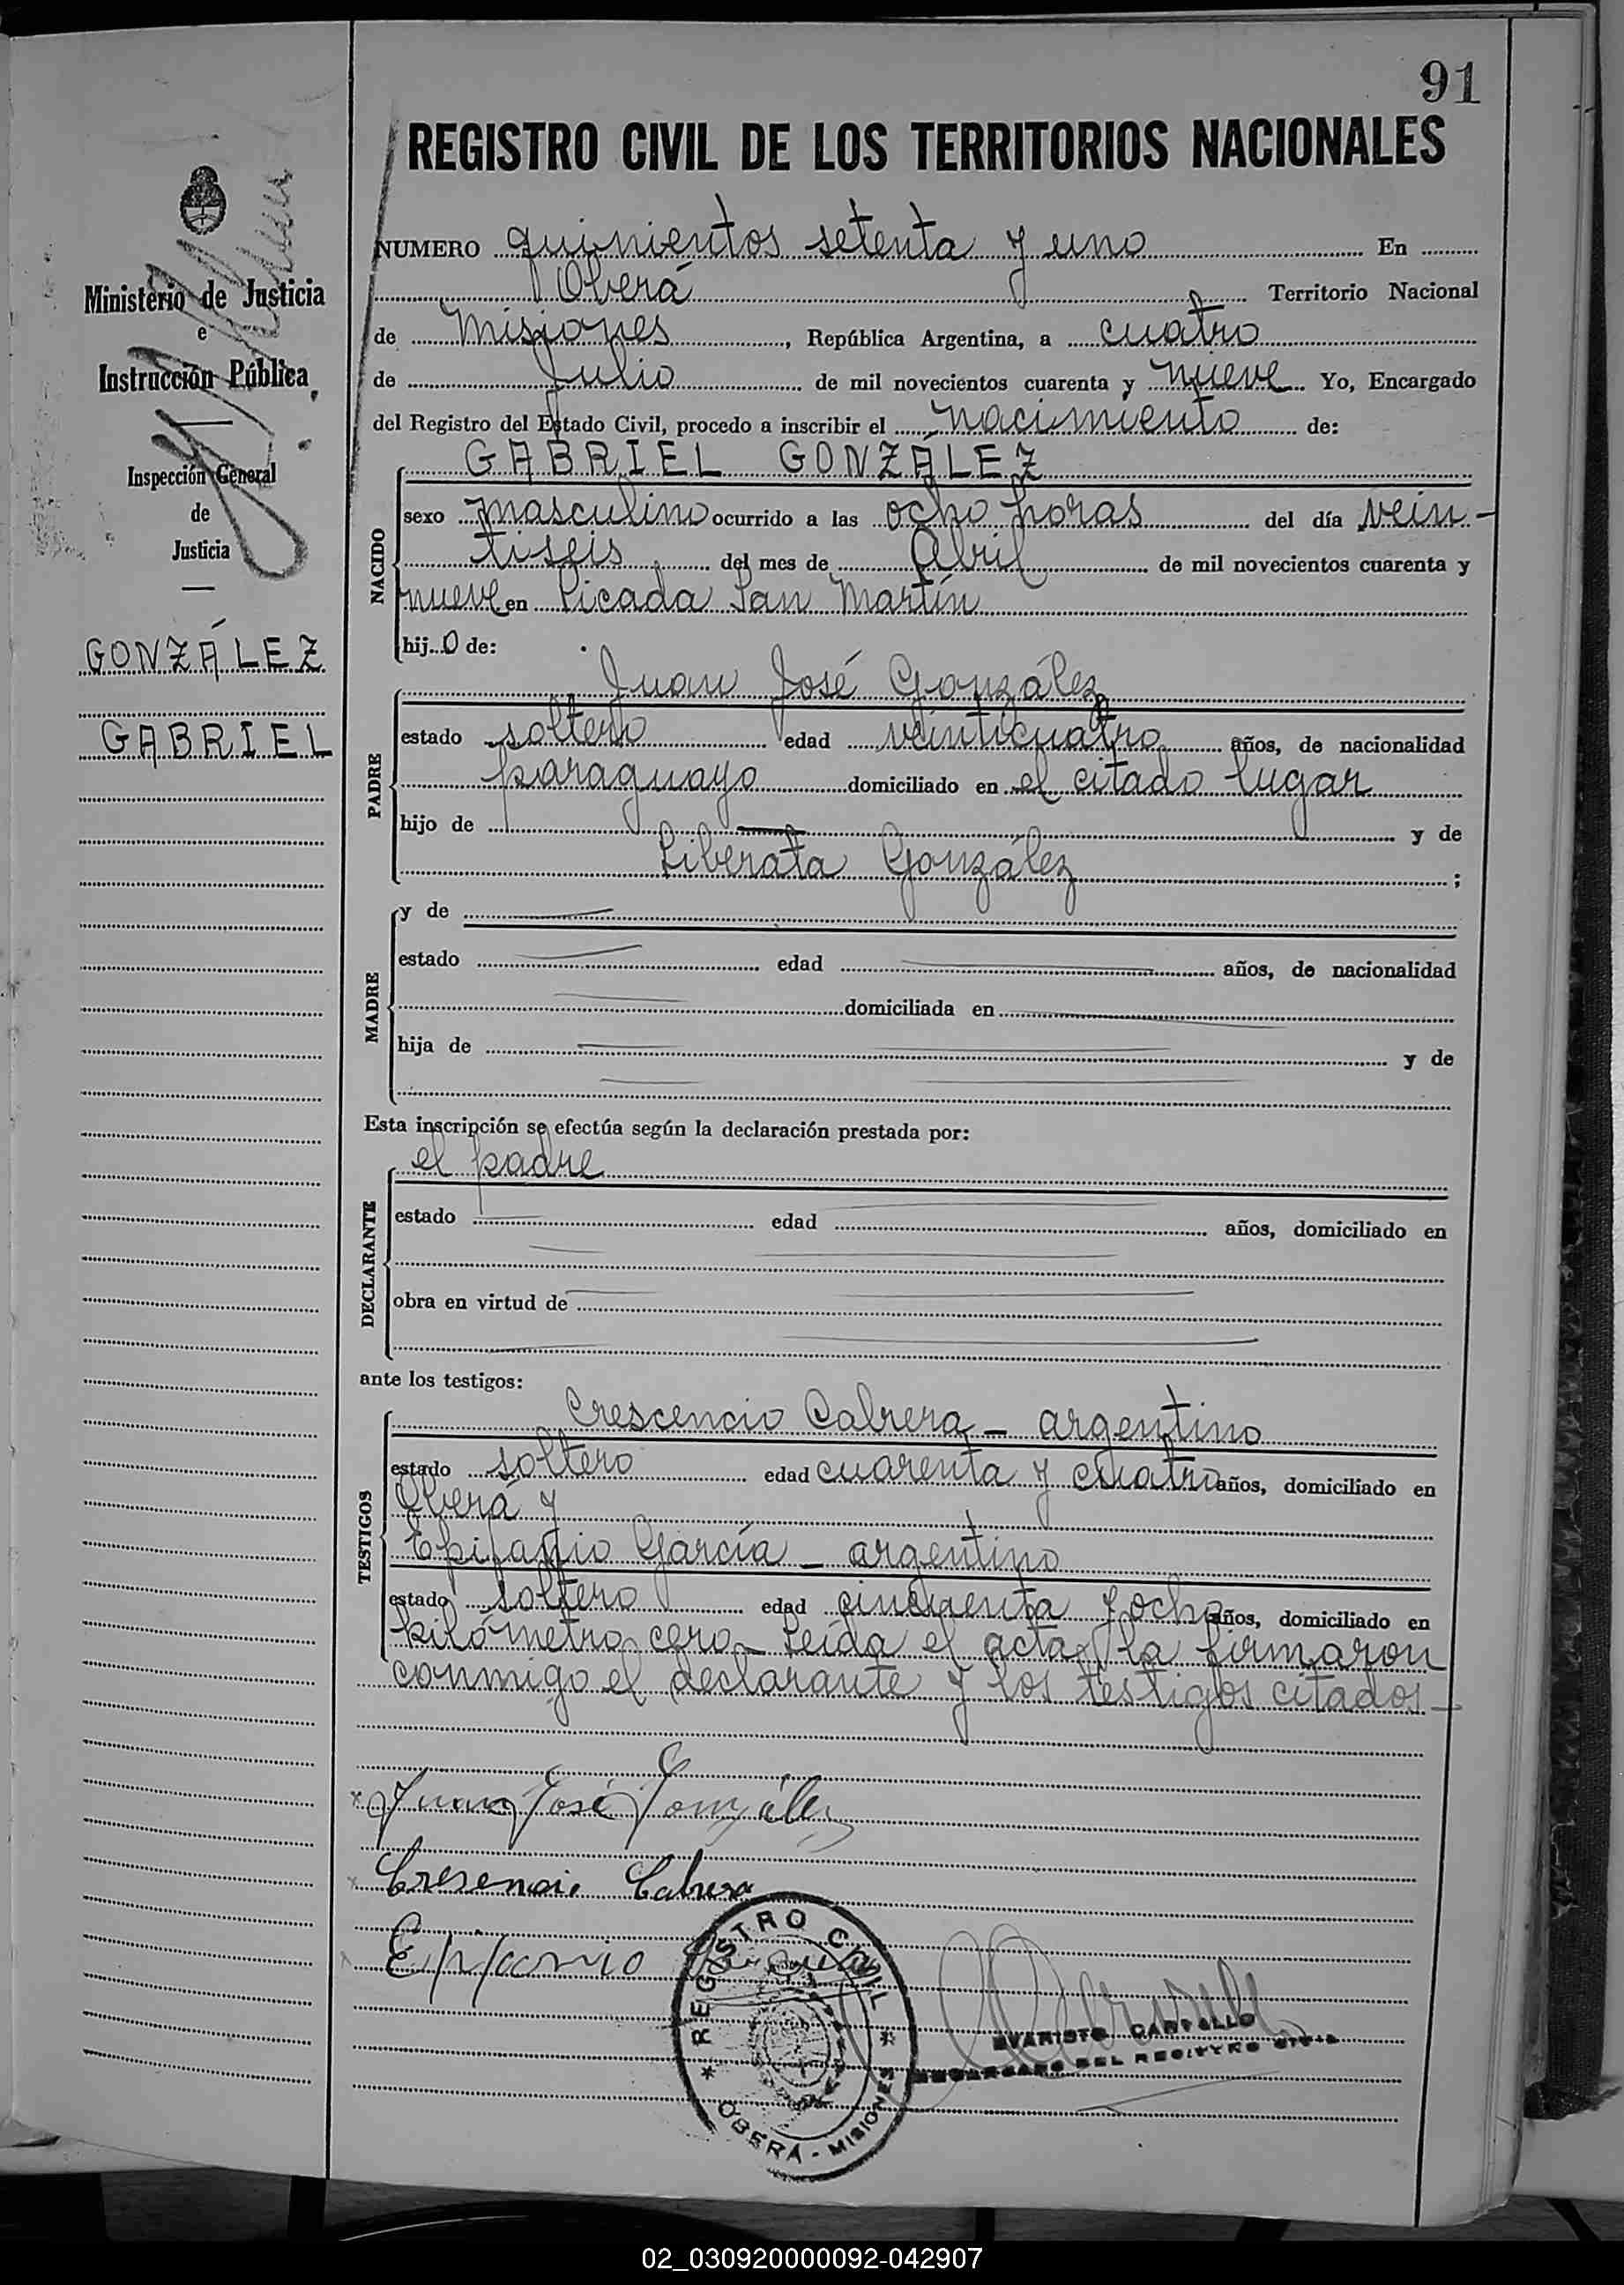 91
REGISTRO CIVIL DE LOS TERRITORIOS NACIONALES
Ministerio de Justicia
e
Instrucción Pública
Inspección General
de
Justicia
GONZÁLEZ
GABRIEL
NUMERO quinientos setenta y uno En
Oberá Territorio Nacional
de Misiones, República Argentina, a cuatro
de Julio de mil novecientos cuarenta y nueve Yo, Encargado
del Registro del Estado Civil, procedo a inscribir el nacimiento de:
NACIDO
GABRIEL GONZÁLEZ
sexo masculino ocurrido a las ocho horas del día vein-
tiseis del mes de Abril de mil novecientos cuarenta y
nueve en Picada San Martín
hijo de:
PADRE
Juan José González
estado soltero edad veinticuatro años, de nacionalidad
paraguayo domiciliado en el citado lugar
hijo de — y de
Liberata González ;
MADRE
y de —
estado — edad — años, de nacionalidad
— domiciliada en —
hija de — y de
Esta inscripción se efectúa según la declaración prestada por:
DECLARANTE
el padre
estado — edad — años, domiciliado en
obra en virtud de —
ante los testigos:
TESTIGOS
Crescencio Cabrera - argentino
estado soltero edad cuarenta y cuatro años, domiciliado en
Oberá y
Epifanio García - argentino
estado soltero edad cincuenta y ocho años, domiciliado en
kilómetro cero - Leída el acta, la firmaron
conmigo el declarante y los testigos citados -
x Juan José González
x Cresencio Cabrera
Epifanio
REGISTRO CIVIL
* OBERÁ - MISIONES *
EVARISTO CARVALLO
ENCARGADO DEL REGISTRO CIVIL
02_030920000092-042907